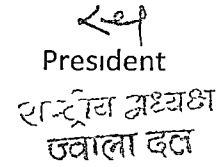 President
राष्ट्रीय अध्यक्ष
ज्वाला दल